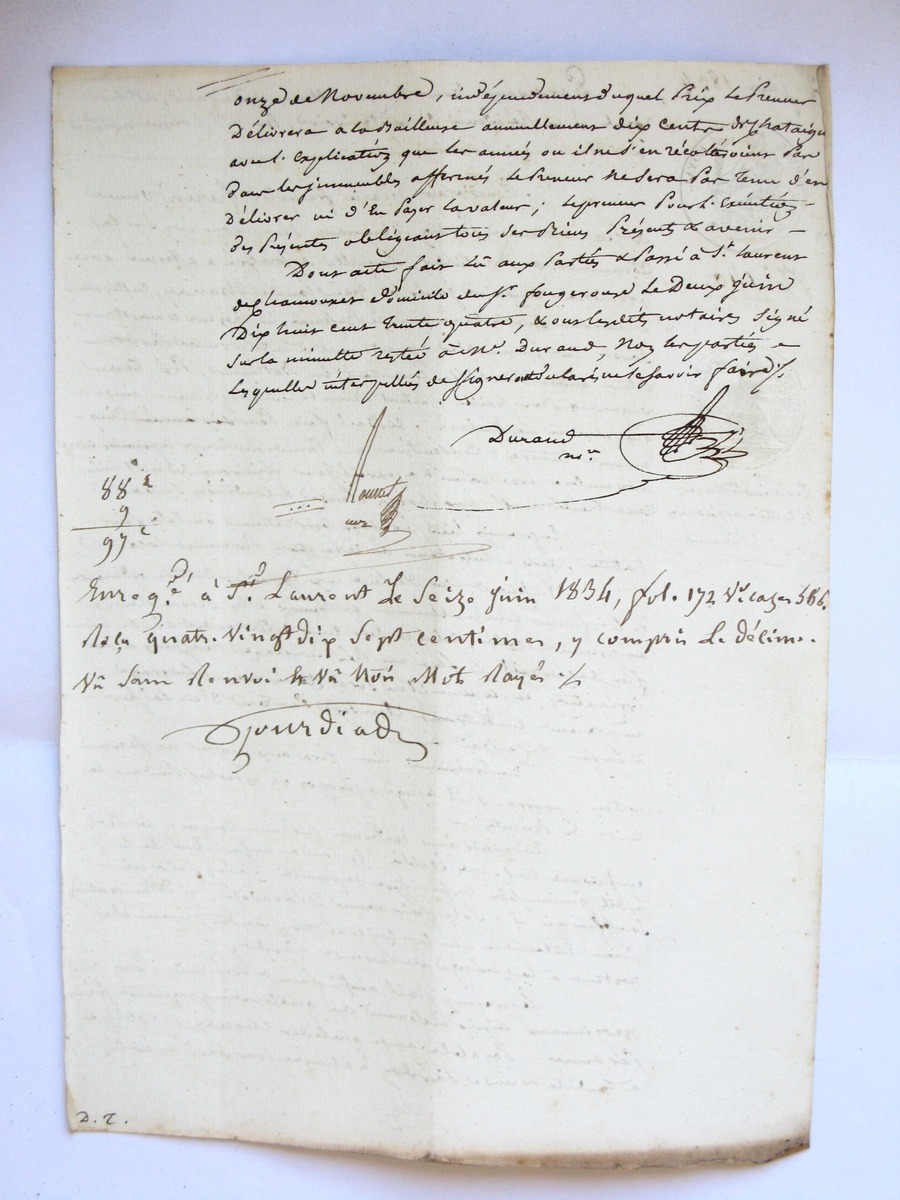 onze de Novembre, indépendemment duquel Prix le Preneur
Délivrera a la Bailleuse annuellement dix cents de Chataigne
avec l'explication que les années ou il ne s'en récolteroient Pas
Dans les jmmeubles affermés le Preneur ne sera Pas Tenu d'en
Délivrer ni d'En Payer la valeur; le preneur Pour l'Exécution
des Présentes obligeant tous ses Biens Présents & avenir
Dont acte fait lu aux Parties & Passé à St. Laurent
de Chamousset Domicile du Sr. fougerouse le Deux juin
Dix huit cent trente quatre, & ont lesdits notaires Signé
Sur la minutte restée à Me. Durand, Non les parties
lesquelles interpellés de Signer ont déclaré ne le savoir faire ./.
Durand
nre.
88 c
9
97 c
Enregé. à St. Laurent le Seize juin 1834, fol. 172 Vo. cazes 5 & 6.
Reçu quatre vingt dix Sept centimes, y compris le délime.
Vu Sans Renvoi & Vu Mots Rayés ./.
Jourdiad
D. T.